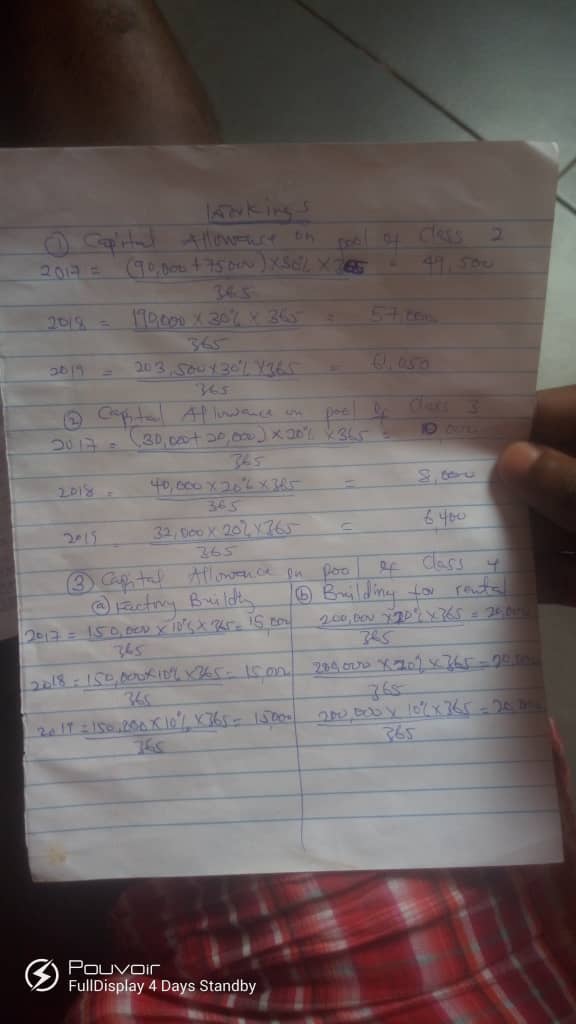 Workings
① Capital Allowance on pool of Class 2
2017 = (90,000 + 75000) × 30% × 365 = 49,500
365
2018 = 190,000 × 30% × 365 = 57,000
365
2019 = 203,500 × 30% × 365 = 61,050
365
② Capital Allowance on pool of Class 3
2017 = (30,000 + 20,000) × 20% × 365 = 10,000
365
2018 = 40,000 × 20% × 365 = 8,000
365
2019 32,000 × 20% × 365 = 6,400
365
③ Capital Allowance on pool of Class 4
ⓐ Factory Building
2017 = 150,000 × 10% × 365 = 15,000
365
2018 = 150,000 × 10% × 365 = 15,000
365
2019 = 150,000 × 10% × 365 = 15,000
365
ⓑ Building for rental
200,000 × 10% × 365 = 20,000
365
200,000 × 10% × 365 = 20,000
365
200,000 × 10% × 365 = 20,000
365
Pouvoir
FullDisplay 4 Days Standby